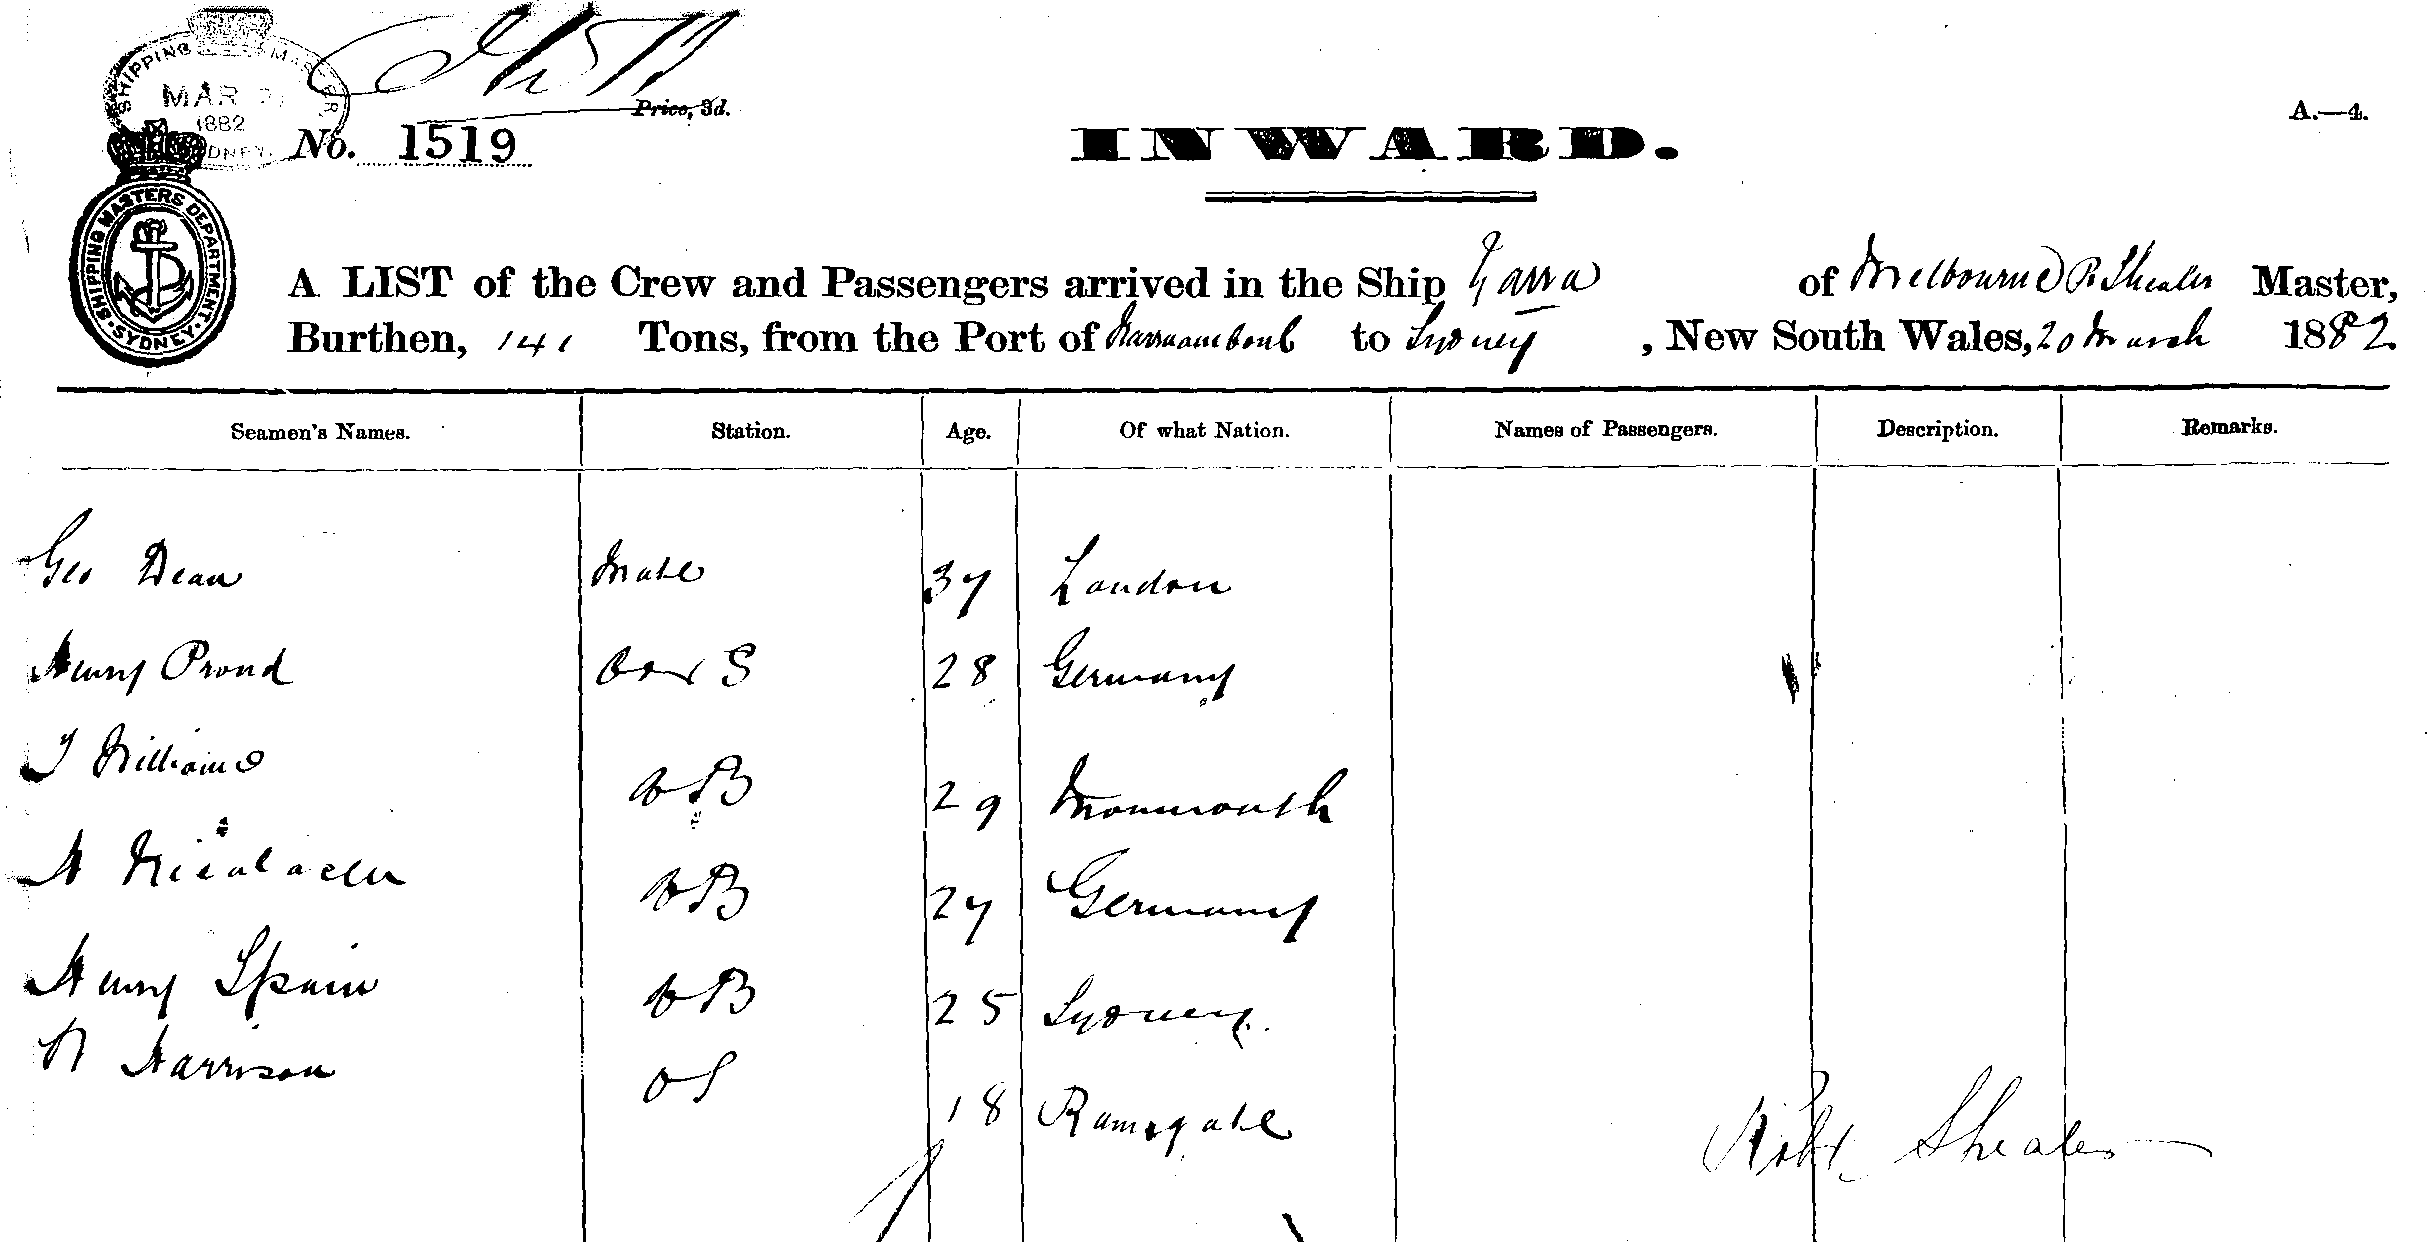 SHIPPING MASTER
MAR
1882
SYDNEY
Price, 3d.
A.—4.
No. 1519
INWARD.
SHIPPING MASTERS DEPARTMENT. SYDNEY.
A LIST of the Crew and Passengers arrived in the Ship Yarra of Melbourne R Sheales Master,
Burthen, 141 Tons, from the Port of to Sydney, New South Wales, 20 March 1882
Seamen's Names. Station. Age. Of what Nation. Names of Passengers. Description. Remarks.
Geo Dean Mate 37 London
Henry Proud S 28 Germany
J Williams AB 29 Monmouth
H AB 27 Germany
Henry Spain AB 25 Sydney.
Harrison OS 18 Ramsgate
Robt Sheales